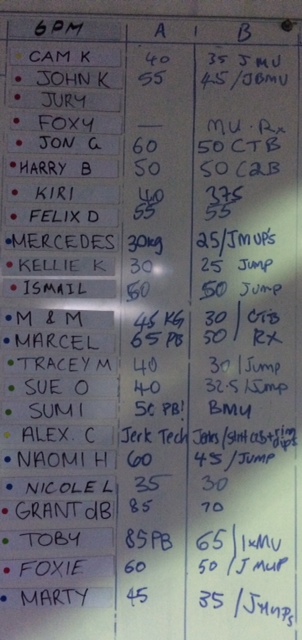 6PM A B
CAM K 40 35 JMU
JOHN K 55 45/JBMU
JURY
FOXY — MU. Rx
JON G 60 50 CTB
HARRY B 50 50 C2B
KIRI 40 37.5
FELIX D 55 55
MERCEDES 30kg 25/JMUPS
KELLIE K 30 25 JUMP
ISMAIL 50 50 JUMP
M & M 45 KG 30/CTB
MARCEL 65 PB 50/RX
TRACEY M 40 30/Jump
SUE O 40 32.5/Jump
SUMI 50 PB! BMU
ALEX. C Jerk Tech
NAOMI H 60 45/JUMP
NICOLE L 35 30
GRANT dB 85 70
TOBY 85PB 65/1xMU
FOXIE 60 50/JMUP
MARTY 45 35/JMUPS